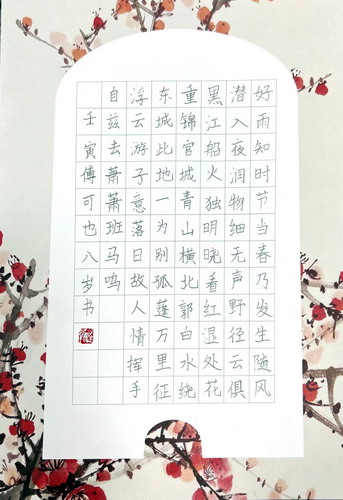 好雨知时节当春乃发生随风
潜入夜润物细无声野径云俱
黑江船火独明晓看红湿处花
重锦官城青山横北郭白水绕
东城此地一为别孤蓬万里征
浮云游子意落日故人情挥手
自兹去萧萧班马鸣
壬寅傅可也八岁书